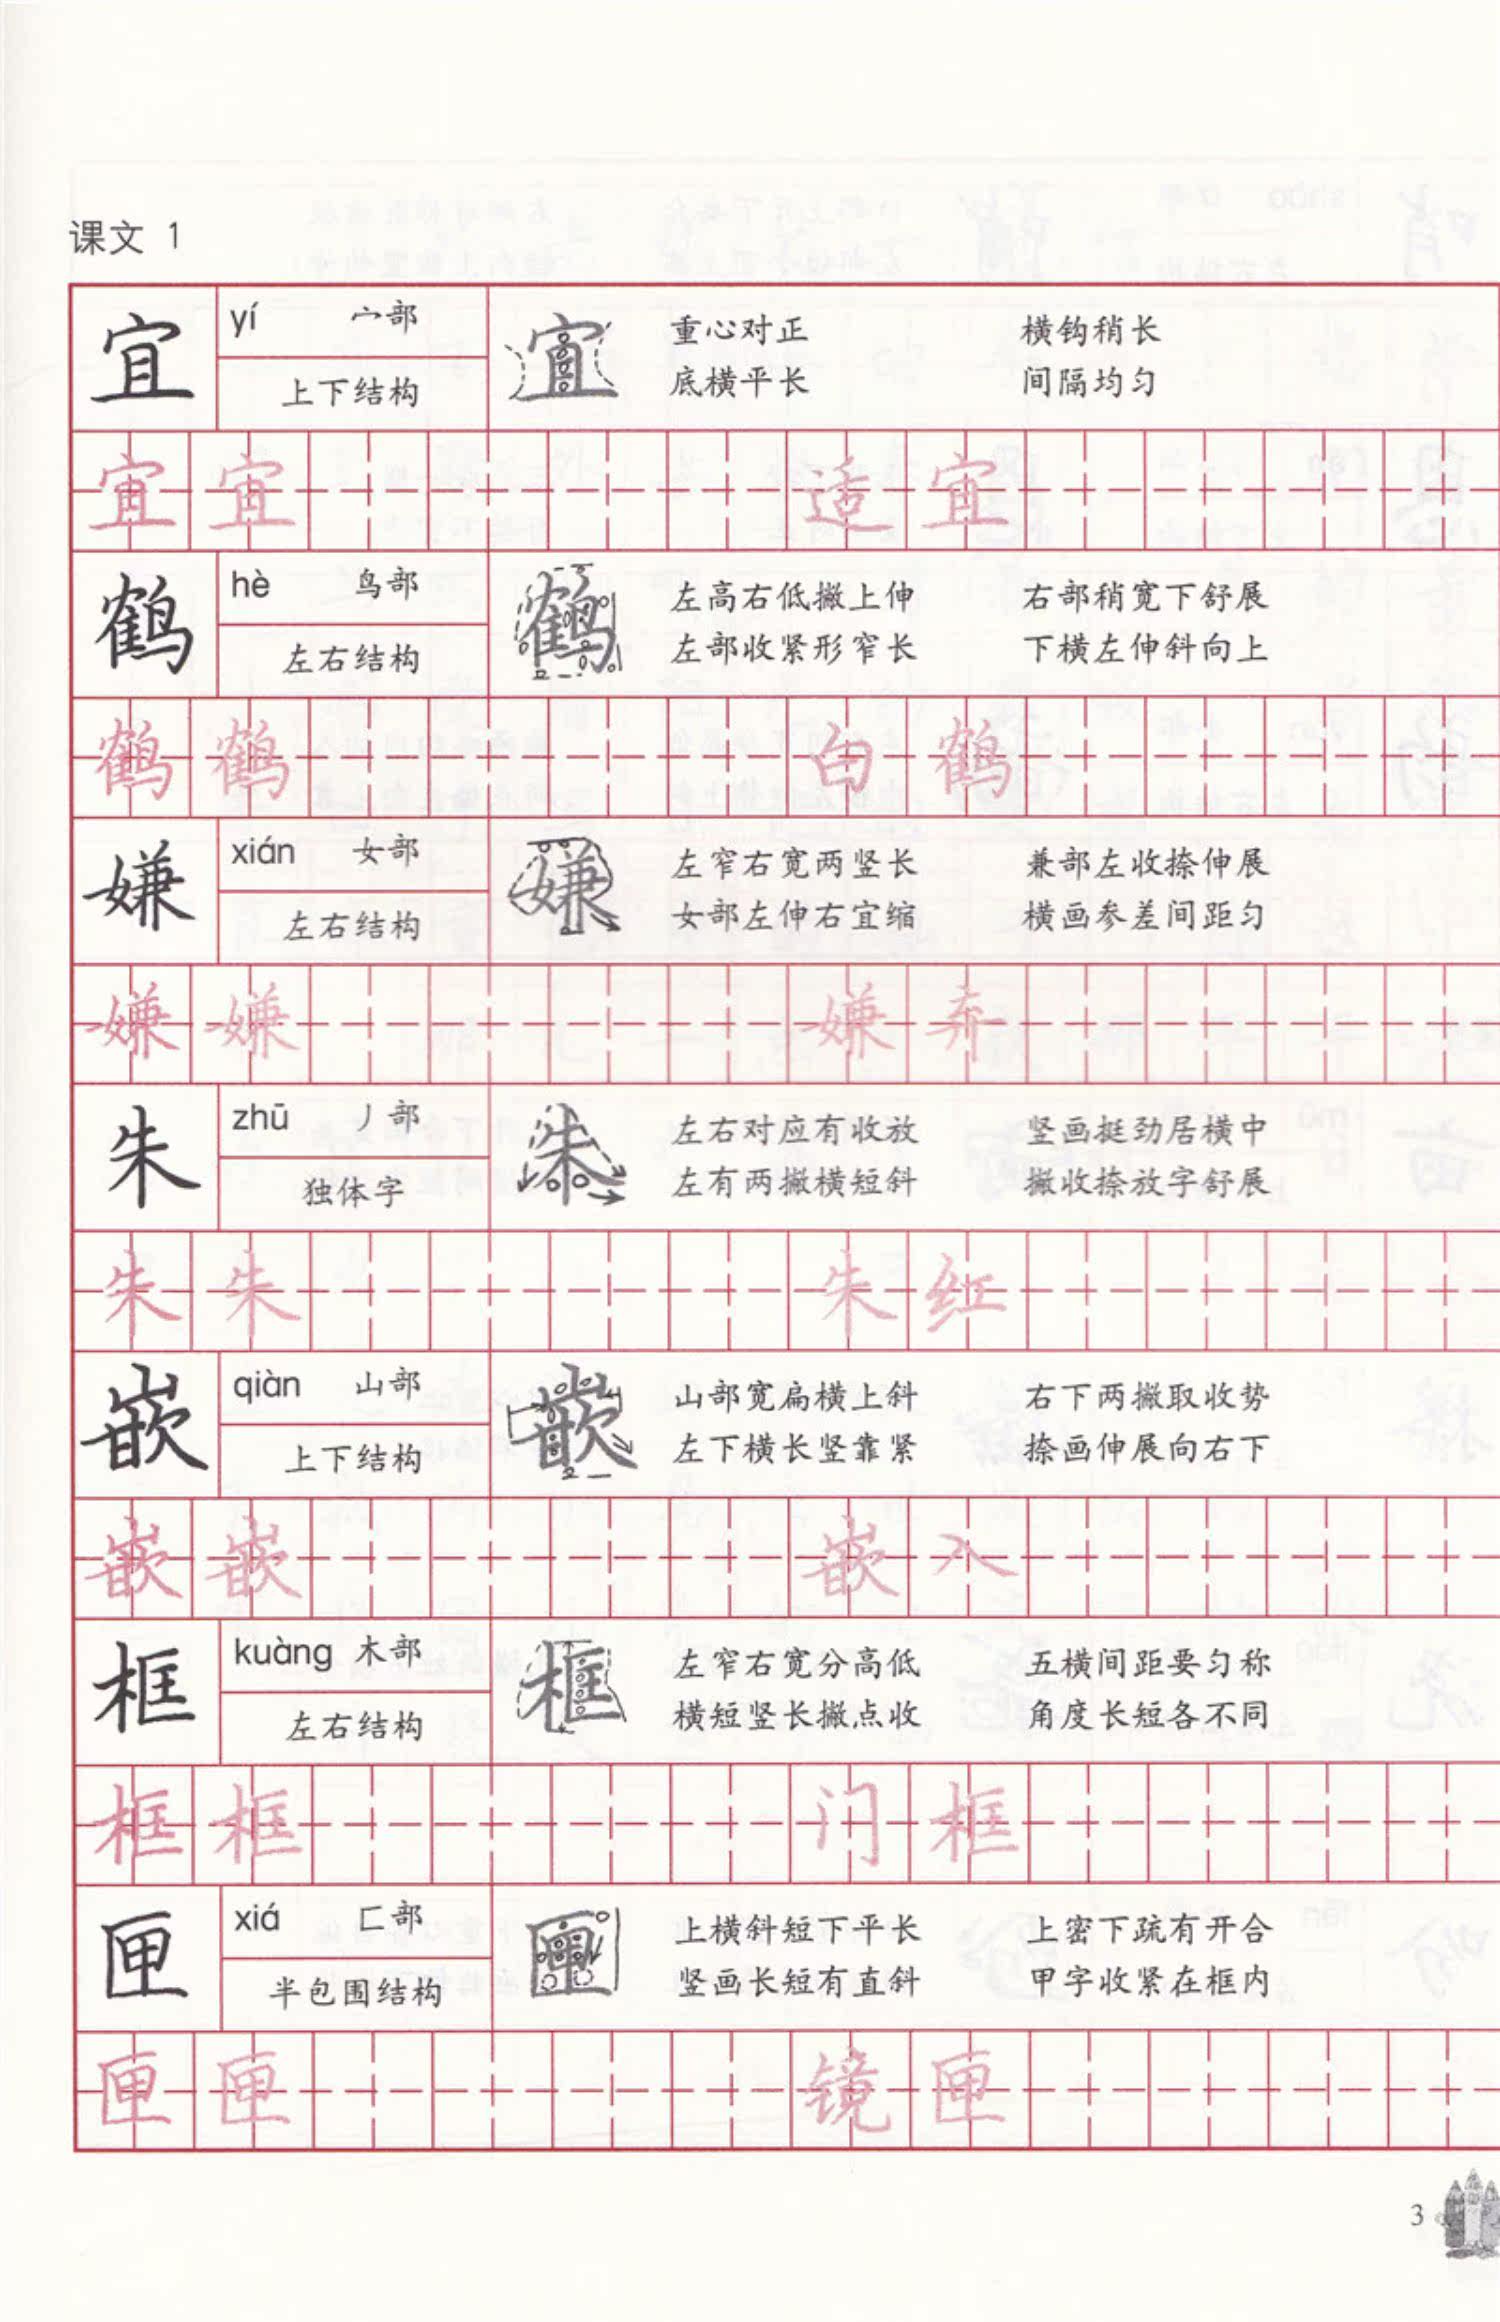 课文 1
宜 yí 宀部 上下结构
宜 重心对正 横钩稍长
底横平长 间隔均匀
宜 宜 适 宜
鹤 hè 鸟部 左右结构
鹤 左高右低撇上伸 右部稍宽下舒展
左部收紧形窄长 下横左伸斜向上
鹤 鹤 白 鹤
嫌 xián 女部 左右结构
嫌 左窄右宽两竖长 兼部左收捺伸展
女部左伸右宜缩 横画参差间距匀
嫌 嫌 嫌 弃
朱 zhū 丿部 独体字
朱 左右对应有收放 竖画挺劲居横中
左有两撇横短斜 撇收捺放字舒展
朱 朱 朱 红
嵌 qiàn 山部 上下结构
嵌 山部宽扁横上斜 右下两撇取收势
左下横长竖靠紧 捺画伸展向右下
嵌 嵌 嵌 入
框 kuàng 木部 左右结构
框 左窄右宽分高低 五横间距要匀称
横短竖长撇点收 角度长短各不同
框 框 门 框
匣 xiá 匚部 半包围结构
匣 上横斜短下平长 上密下疏有开合
竖画长短有直斜 甲字收紧在框内
匣 匣 镜 匣
3